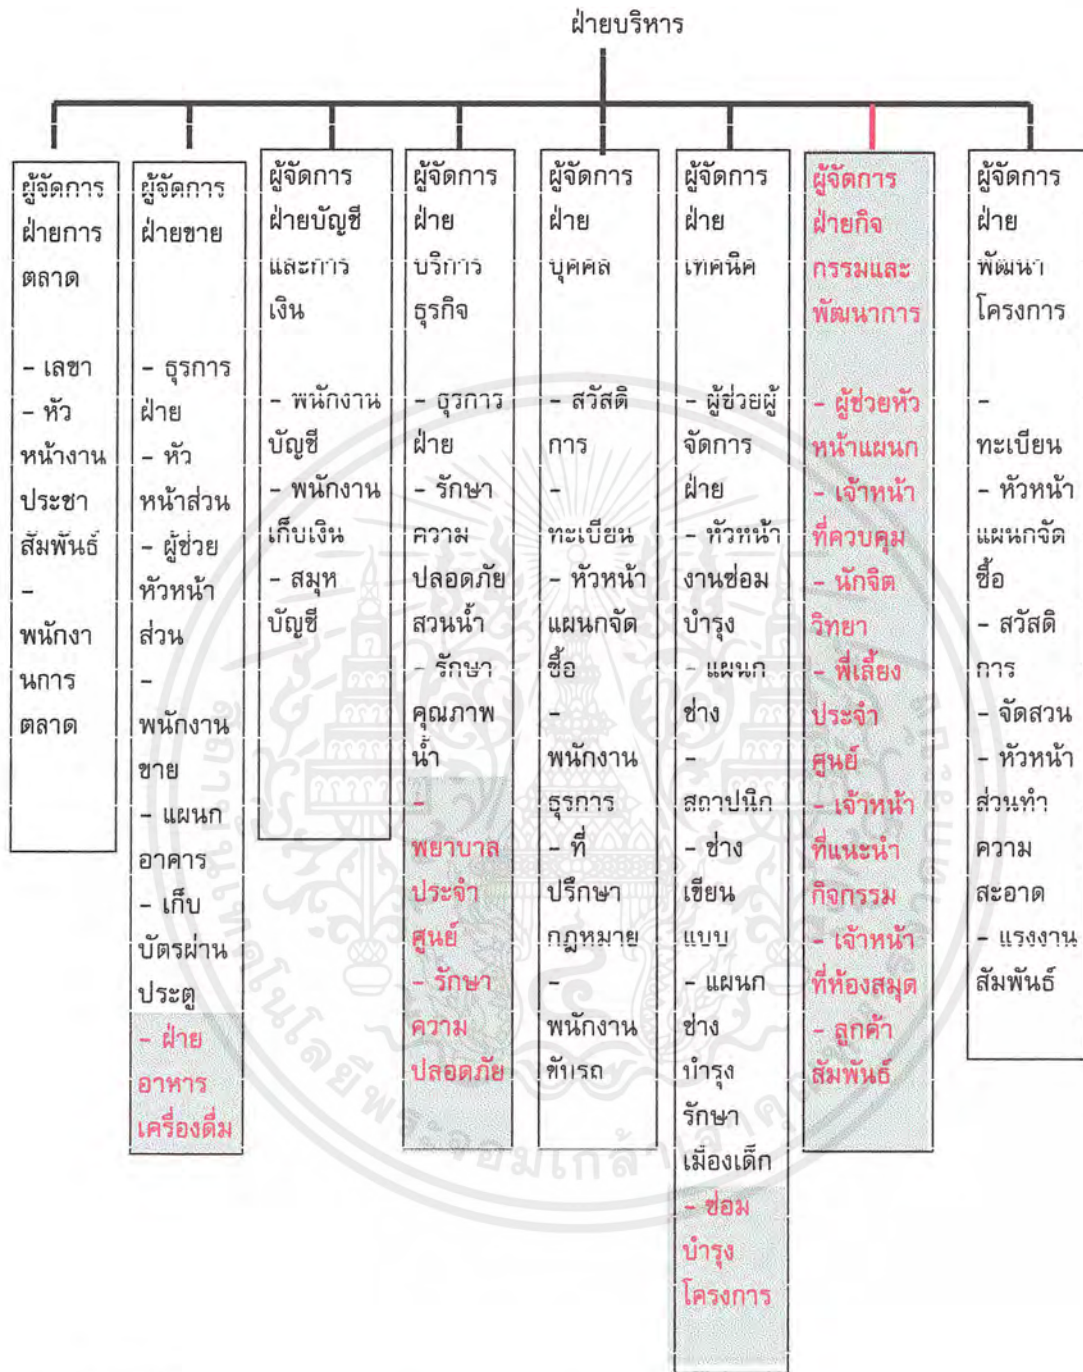 ฝ่ายบริหาร
ผู้จัดการ
ฝ่ายการ
ตลาด
- เลขา
- หัว
หน้างาน
ประชา
สัมพันธ์
-
พนักงา
นการ
ตลาด
ผู้จัดการ
ฝ่ายขาย
- ธุรการ
ฝ่าย
- หัว
หน้าส่วน
- ผู้ช่วย
หัวหน้า
ส่วน
-
พนักงาน
ขาย
- แผนก
อาคาร
- เก็บ
บัตรผ่าน
ประตู
- ฝ่าย
อาหาร
เครื่องดื่ม
ผู้จัดการ
ฝ่ายบัญชี
และการ
เงิน
- พนักงาน
บัญชี
- พนักงาน
เก็บเงิน
- สมุห
บัญชี
ผู้จัดการ
ฝ่าย
บริการ
ธุรกิจ
- ธุรการ
ฝ่าย
- รักษา
ความ
ปลอดภัย
สวนน้ำ
- รักษา
คุณภาพ
น้ำ
-
พยาบาล
ประจำ
ศูนย์
- รักษา
ความ
ปลอดภัย
ผู้จัดการ
ฝ่าย
บุคคล
- สวัสดิ
การ
-
ทะเบียน
- หัวหน้า
แผนกจัด
ซื้อ
-
พนักงาน
ธุรการ
- ที่
ปรึกษา
กฎหมาย
-
พนักงาน
ขับรถ
ผู้จัดการ
ฝ่าย
เทคนิค
- ผู้ช่วยผู้
จัดการ
ฝ่าย
- หัวหน้า
งานซ่อม
บำรุง
- แผนก
ช่าง
-
สถาปนิก
- ช่าง
เขียน
แบบ
- แผนก
ช่าง
บำรุง
รักษา
เมืองเด็ก
- ซ่อม
บำรุง
โครงการ
ผู้จัดการ
ฝ่ายกิจ
กรรมและ
พัฒนาการ
- ผู้ช่วยหัว
หน้าแผนก
- เจ้าหน้า
ที่ควบคุม
- นักจิต
วิทยา
- พี่เลี้ยง
ประจำ
ศูนย์
- เจ้าหน้า
ที่แนะนำ
กิจกรรม
- เจ้าหน้า
ที่ห้องสมุด
- ลูกค้า
สัมพันธ์
ผู้จัดการ
ฝ่าย
พัฒนา
โครงการ
-
ทะเบียน
- หัวหน้า
แผนกจัด
ซื้อ
- สวัสดิ
การ
- จัดสวน
- หัวหน้า
ส่วนทำ
ความ
สะอาด
- แรงงาน
สัมพันธ์